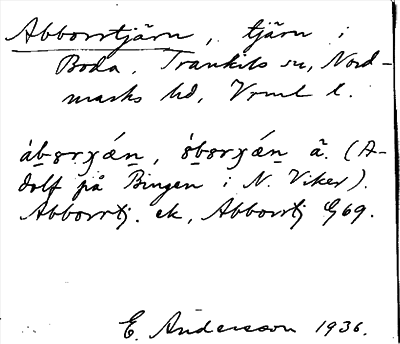 Abborrtjärn, tjärn i
Boda. Trankils sn, Nord-
marks hd, Vrml l.
ábɘrɣǽn, ɘ́bɘrɣǽn ã. (A-
dolf på Bingen i N. Viker).
Abborrtj. ek, Abborrtj G69.
E. Andersson 1936.